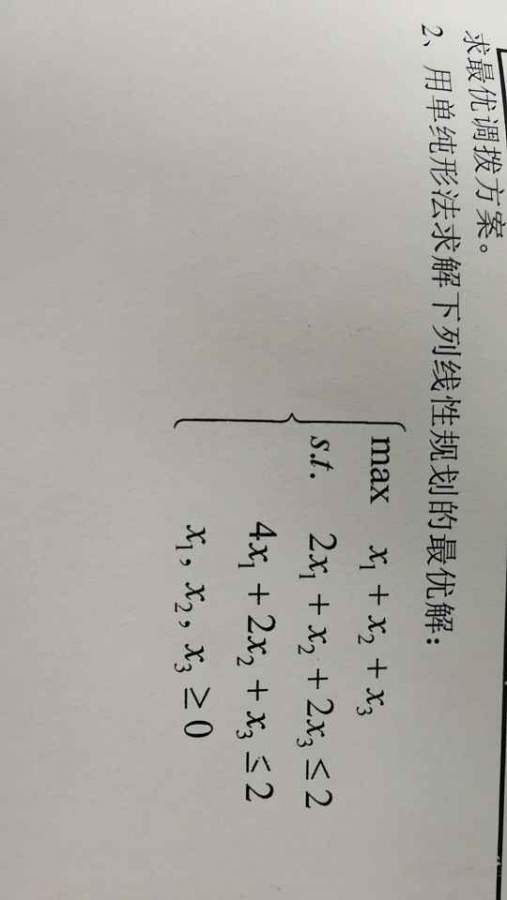 求最优调拨方案。
2、用单纯形法求解下列线性规划的最优解：
max x₁ + x₂ + x₃
s.t. 2x₁ + x₂ + 2x₃ ≤ 2
4x₁ + 2x₂ + x₃ ≤ 2
x₁, x₂, x₃ ≥ 0